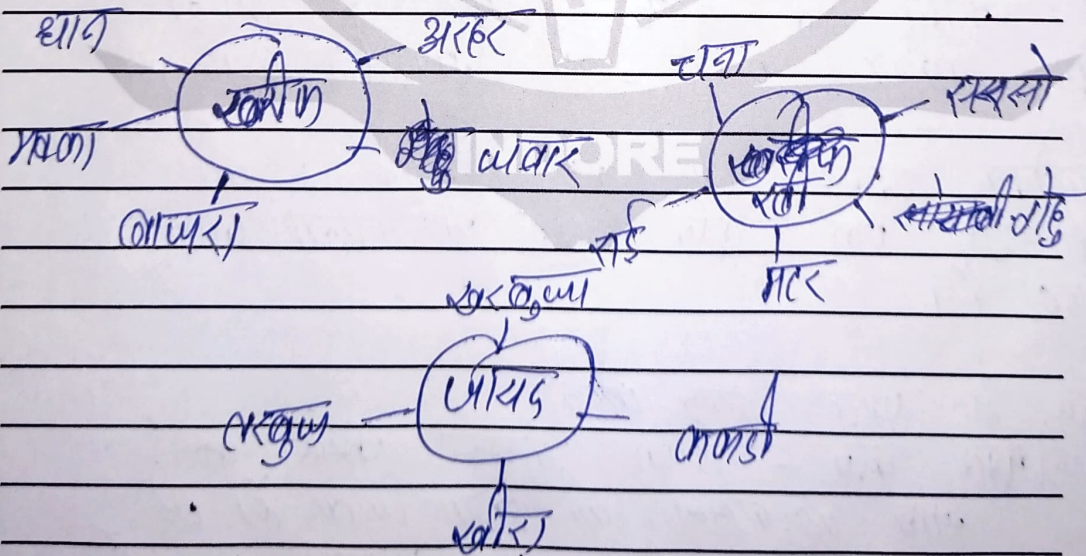 धान
अरहर
खरीफ
मक्का
ज्वार
बाजरा
चना
सरसो
रबी
गेहु
राई
मटर
खरबुजा
जायद
तरबुज
ककडी
खीरा
INDORE